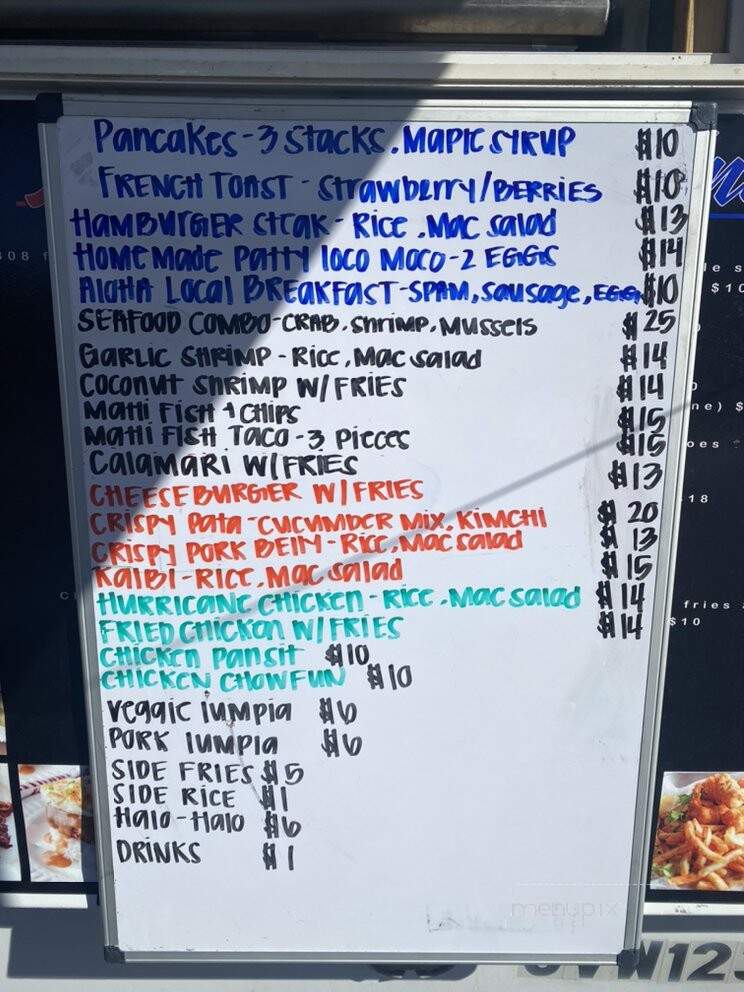 Pancakes - 3 Stacks. Maple SYRUP $10
FRENCH TOAST - Strawberry/BERRIES $10
HAMBURGER Steak - Rice. Mac Salad $13
HOME Made Patty loco Moco - 2 EGGS $14
AlOHA Local BREAKFAST - SPAM, sausage, EGG $10
SEAFOOD COMBO - CRAB. Shrimp. Mussels $25
GARLIC SHRIMP - Rice, Mac salad $14
Coconut Shrimp W/ FRIES $14
MaHi FISH & CHIPS $15
MaHi FISH Taco - 3 Pieces $15
Calamari W/ FRIES $13
CHEESEBURGER W/ FRIES
CRISPY Pata - CUCUMBER Mix. KIMCHI $20
CRISPY PORK BEllY - Rice, Mac salad $13
KalBI - RICE. Mac Salad $15
HURRICANE CHICKEN - Rice. Mac Salad $14
FRIED CHICKEN W/ FRIES $14
CHICKEN Pansit $10
CHICKEN CHOW FUN $10
Veggie lumpia $6
PORK lumpia $6
SIDE FRIES $5
SIDE RICE $1
Halo-Halo $6
DRINKS $1
menupix
808 f
le s
$10
ne) $
oes
18
fries
$10
VW123